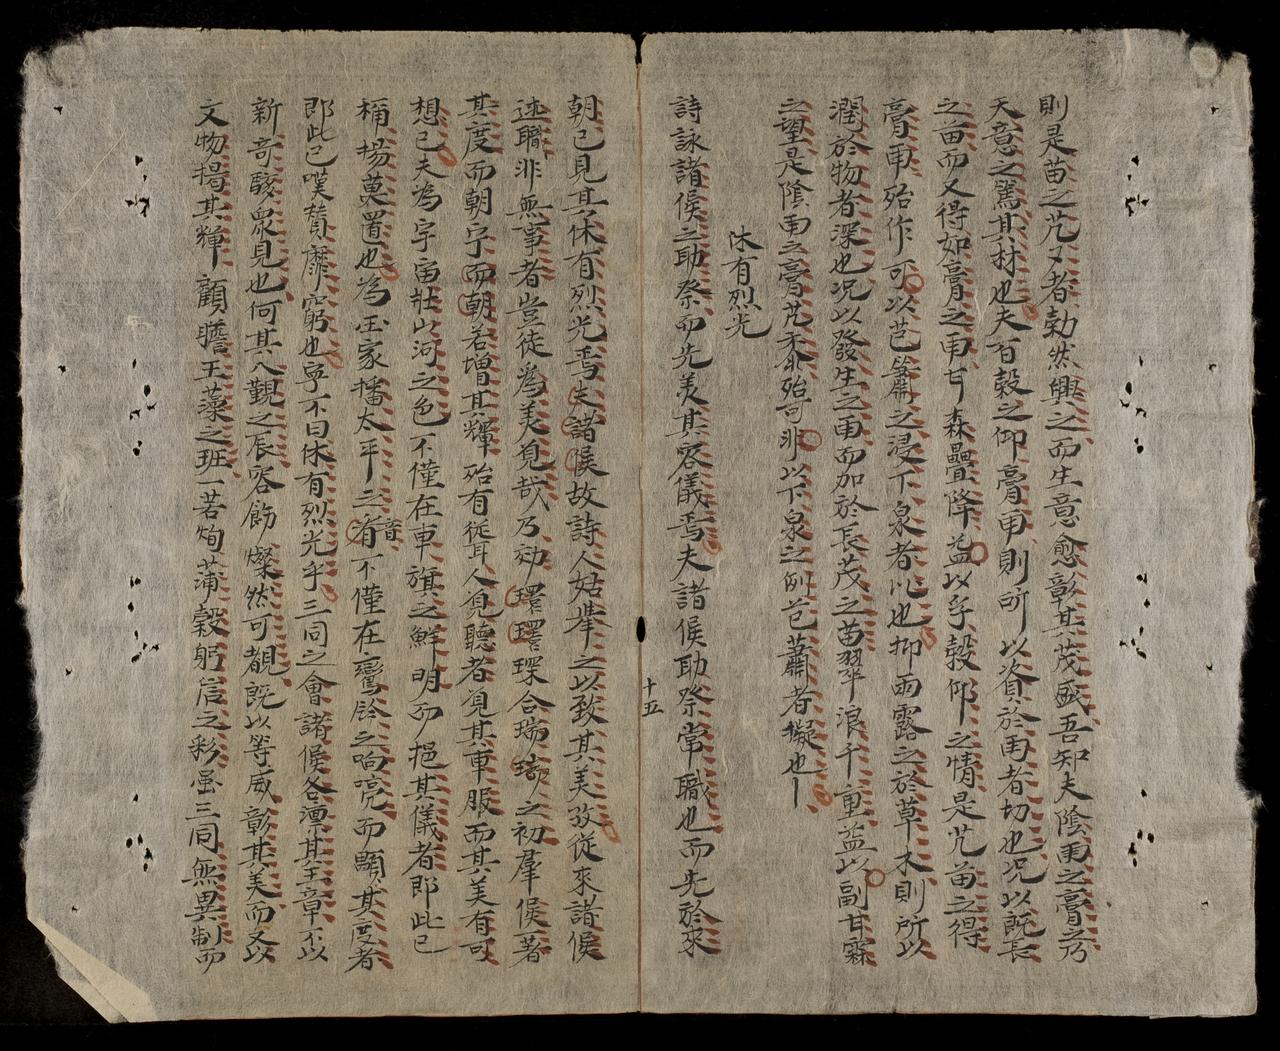 則是苗之芃芃者勃然興之而生意愈彰其茂盛吾知夫陰雨之膏之乃
天意之篤其材也夫百穀之仰膏雨則所以資於雨者切也況以既長
之苗而又得如膏之雨甘森疊降益以孚穀仰之情是芃苗之得
膏雨殆作可以苞蕭之浸下泉者比也抑雨露之於草木則所以
潤於物者深也况以發生之雨而加於長茂之苗翠浪千重益以副甘霖
之望是陰雨之膏芃禾殆可非以下泉之例苞蕭者擬也
休有烈光
詩詠諸侯之助祭而先美其容儀焉夫諸侯助祭常職也而先於來
十五
朝已見其休有烈光焉夫諸侯故詩人始舉之以致其美致從來諸侯
述職非無事者豈徒為美見哉乃効環琛合瑞之初羣侯著
其度而朝宁而朝若增其輝殆有從耳人覓聽者覓其車服而其美有可
想已夫為宇宙壯山河之色不僅在車旗之鮮明而挹其儀者即此已
稱揚莫置也為玉家播太平之有音不僅在鸞鈴之响喨而顯其度者
即此已嘆贊靡窮也寧不曰休有烈光乎三同之會諸侯各凛其王章不以
新奇駭眾見也何其入覲之辰容飾燦然可覩既以等威彰其美而又以
文物揚其輝顧瞻玉藻之班一若炯蒲穀躬信之彩虽三同無異制而